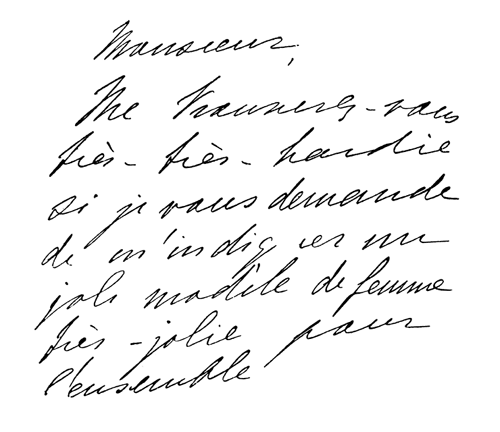 Monsieur,
Me trouverez-vous
très-très-hardie
si je vous demande
de m'indiquer un
joli modèle de femme
très-jolie pour
l'ensemble